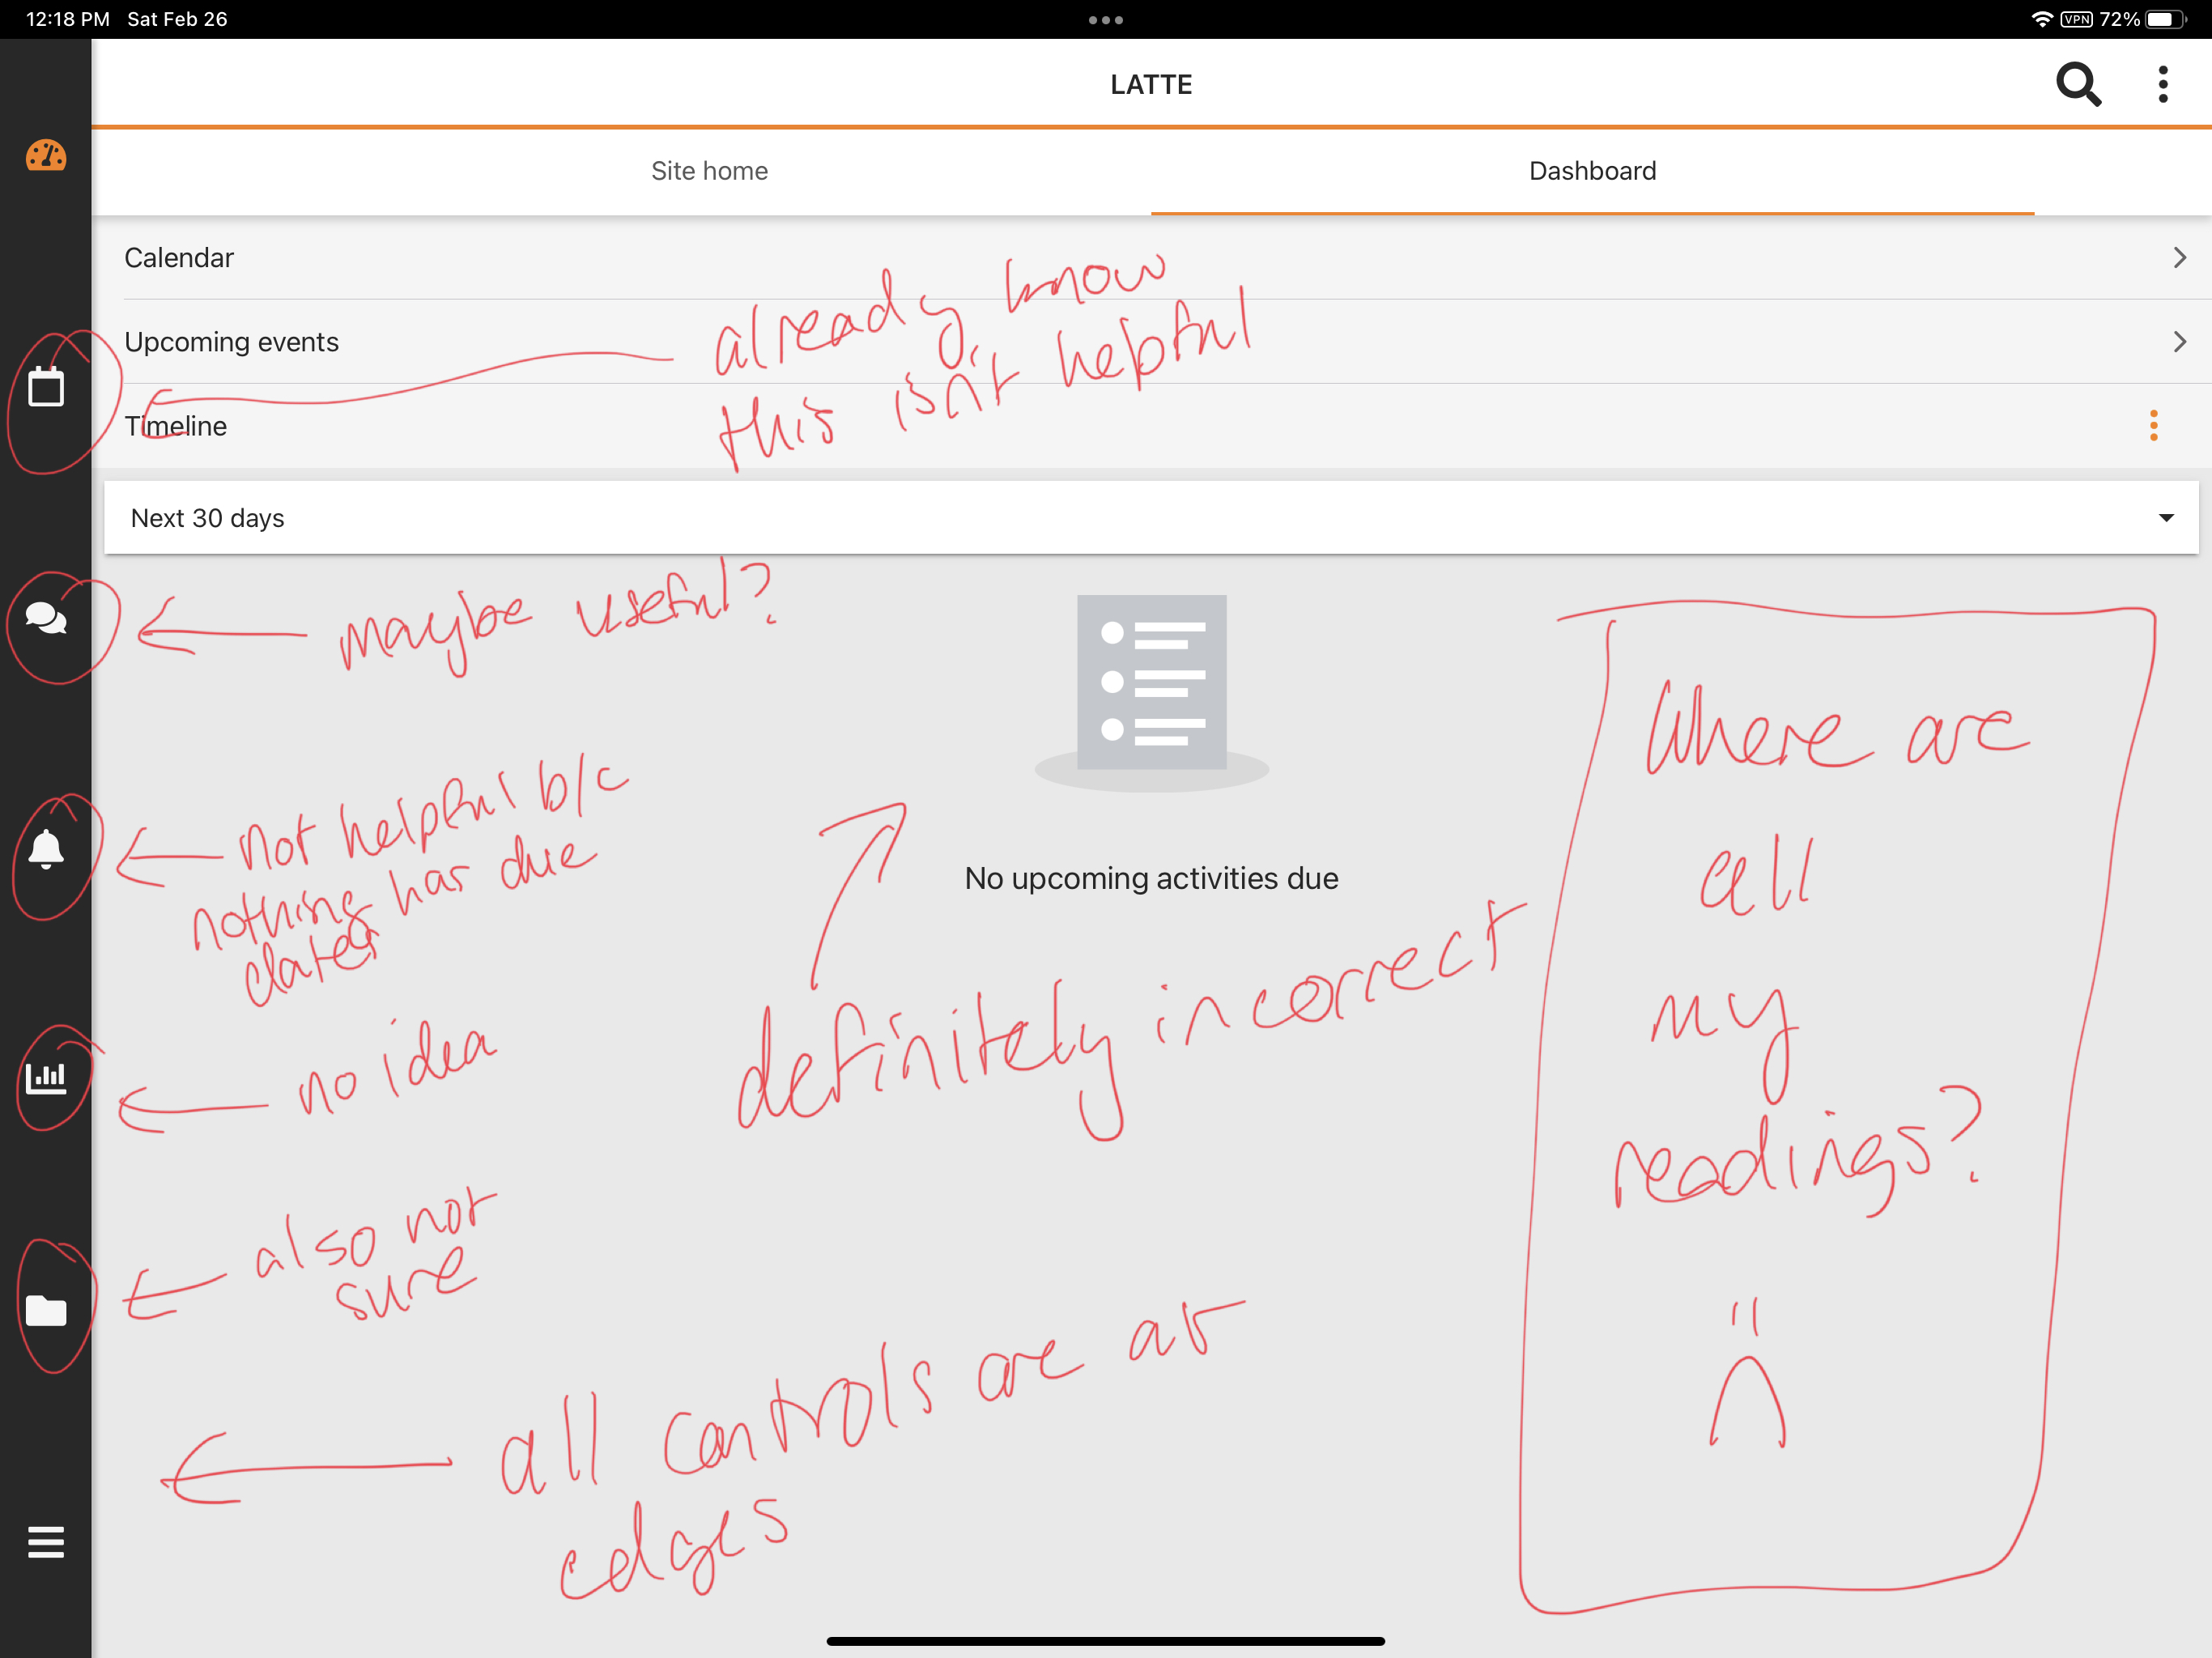 12:18 PM Sat Feb 26
VPN 72%
LATTE
Site home Dashboard
Calendar
Upcoming events
Timeline
already know
this isn't helpful
Next 30 days
maybe useful?
not helpful b/c
nothing has due
dates
No upcoming activities due
definitely incorrect
no idea
also not
sure
all controls are at
edges
Where are
all
my
readings?